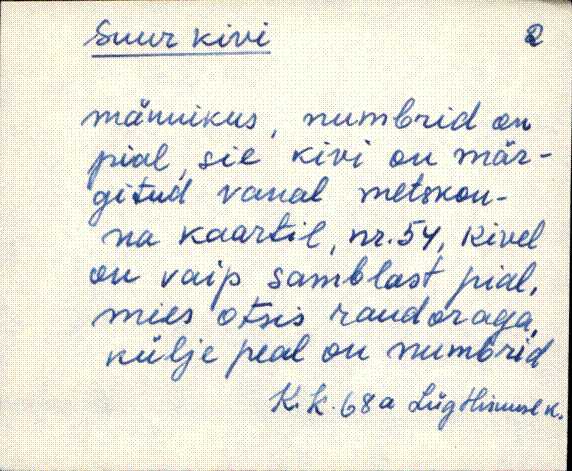 Suur kivi 2
männikus, numbrid on
pial, sie kivi on mär-
gitud vanal metskon-
na kaartil, nr. 54, kivel
on vaip samblast pial,
mies otsis raudoraga,
külje peal on numbrid
K. k. 68 a Lüg